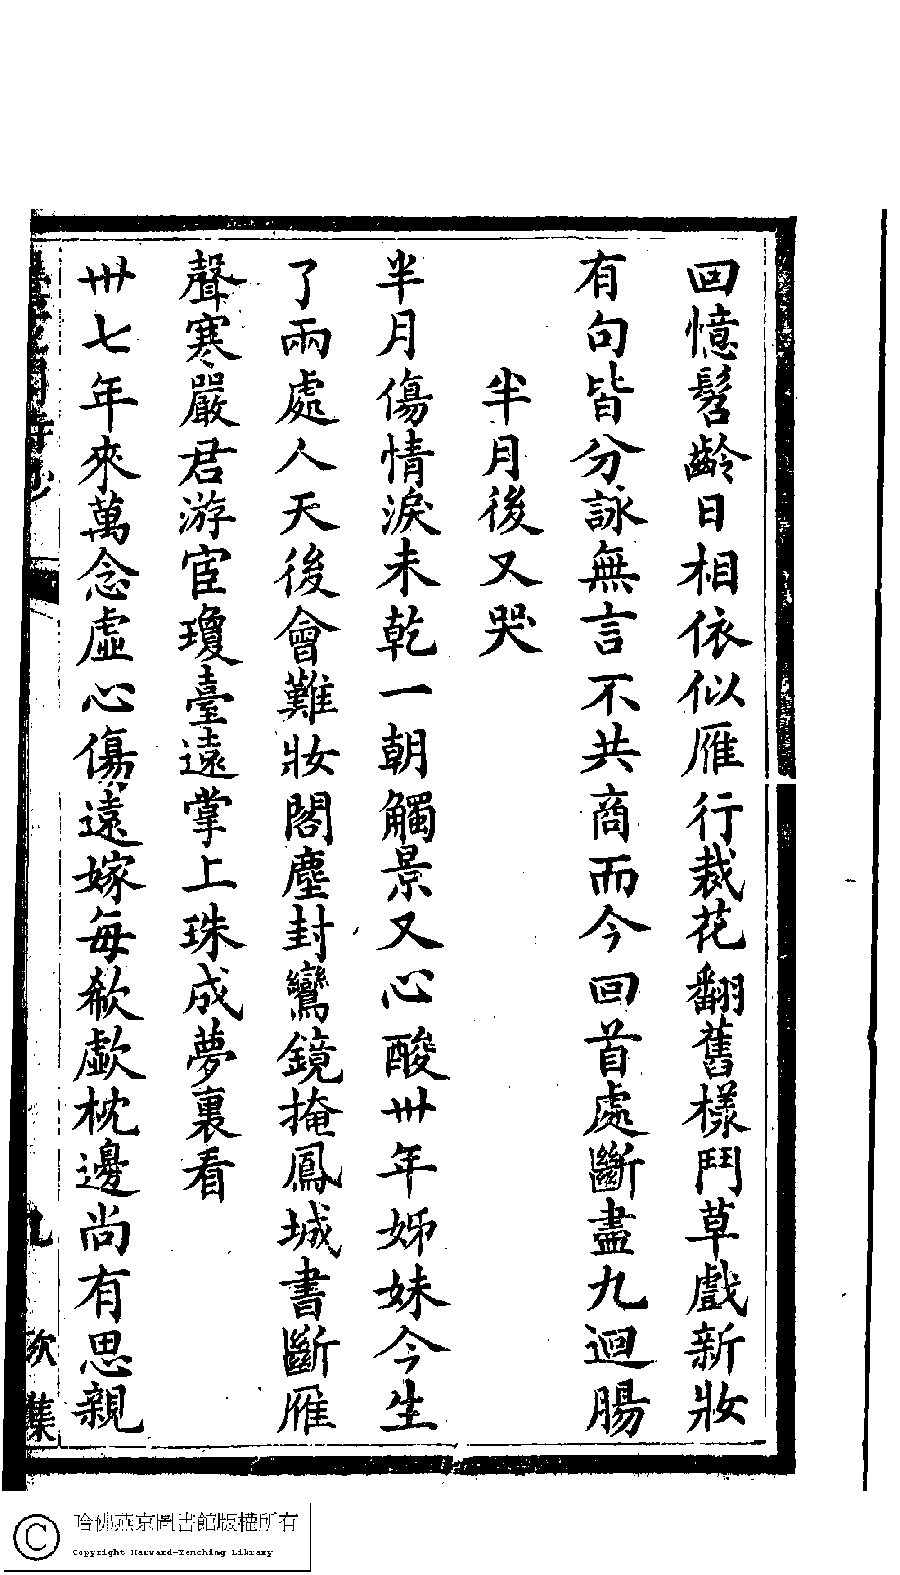 回憶髫齡日相依似雁行裁花翻舊樣鬥草戲新妝
有句皆分詠無言不共商而今回首處斷盡九迴腸
半月後又哭
半月傷情淚未乾一朝觸景又心酸卅年姊妹今生
了兩處人天後會難妝閣塵封鸞鏡掩鳳城書斷雁
聲寒嚴君游宦瓊臺遠掌上珠成夢裏看
卅七年來萬念虛心傷遠嫁每欷歔枕邊尚有思親
九
哈佛燕京圖書館版權所有
Copyright Harvard-Yenching Library